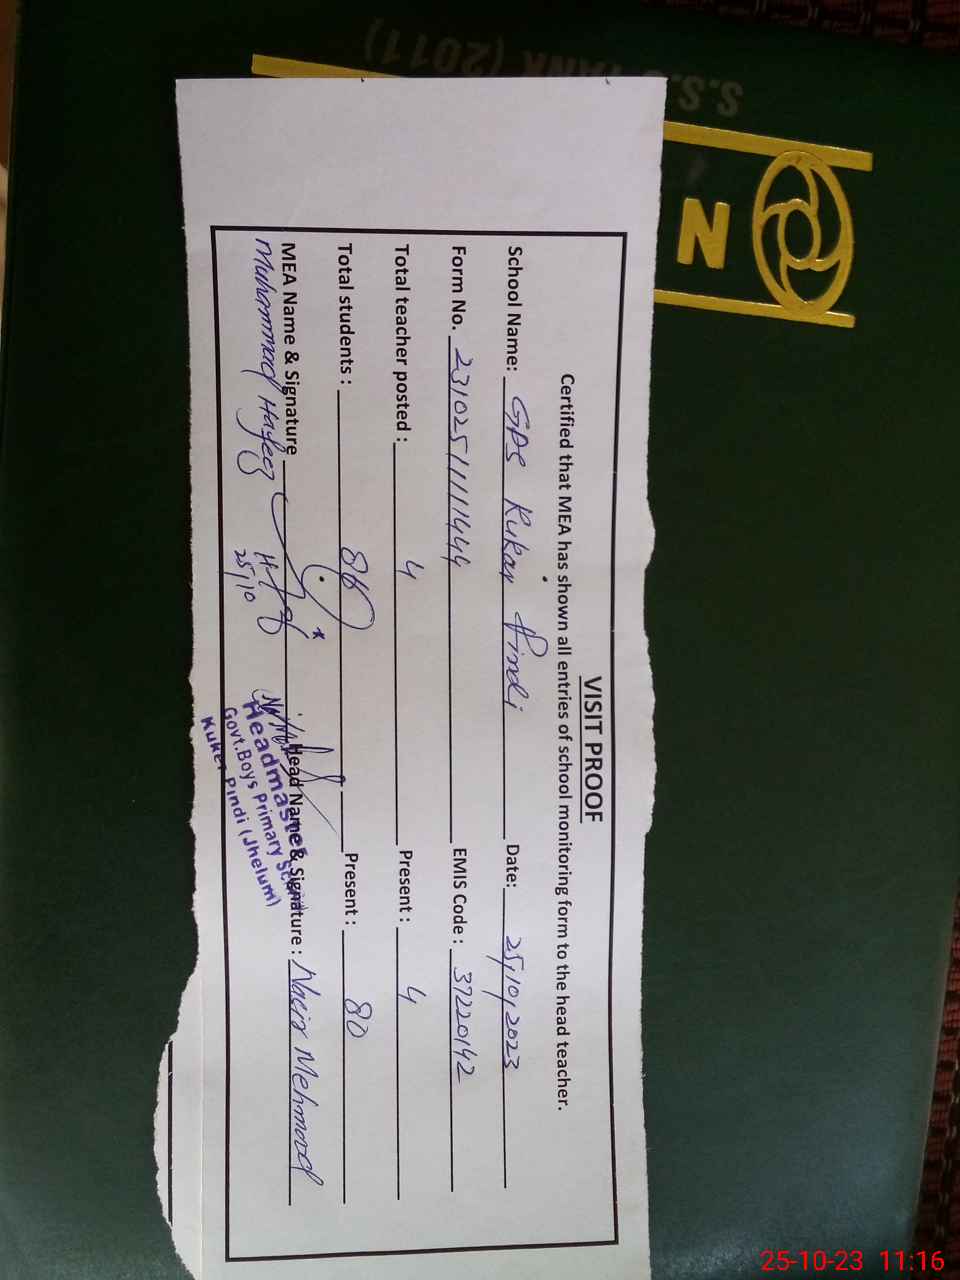 S.S.
(2011)
N
VISIT PROOF
Certified that MEA has shown all entries of school monitoring form to the head teacher.
School Name: GPS Kukar Pindi Date: 25,10,2023
Form No. 231025111111444 EMIS Code: 37220142
Total teacher posted : 4 Present : 4
Total students : 86 Present : 80
MEA Name & Signature Head Name & Signature : Naeir Mehmood
Muhammad Hafeez
25,10
Headmaster
Govt.Boys Primary School
Kuker Pindi (Jhelum)
25-10-23 11:16